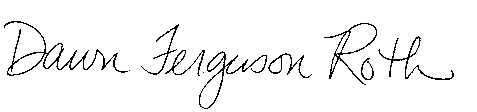 Dawn Ferguson Roth